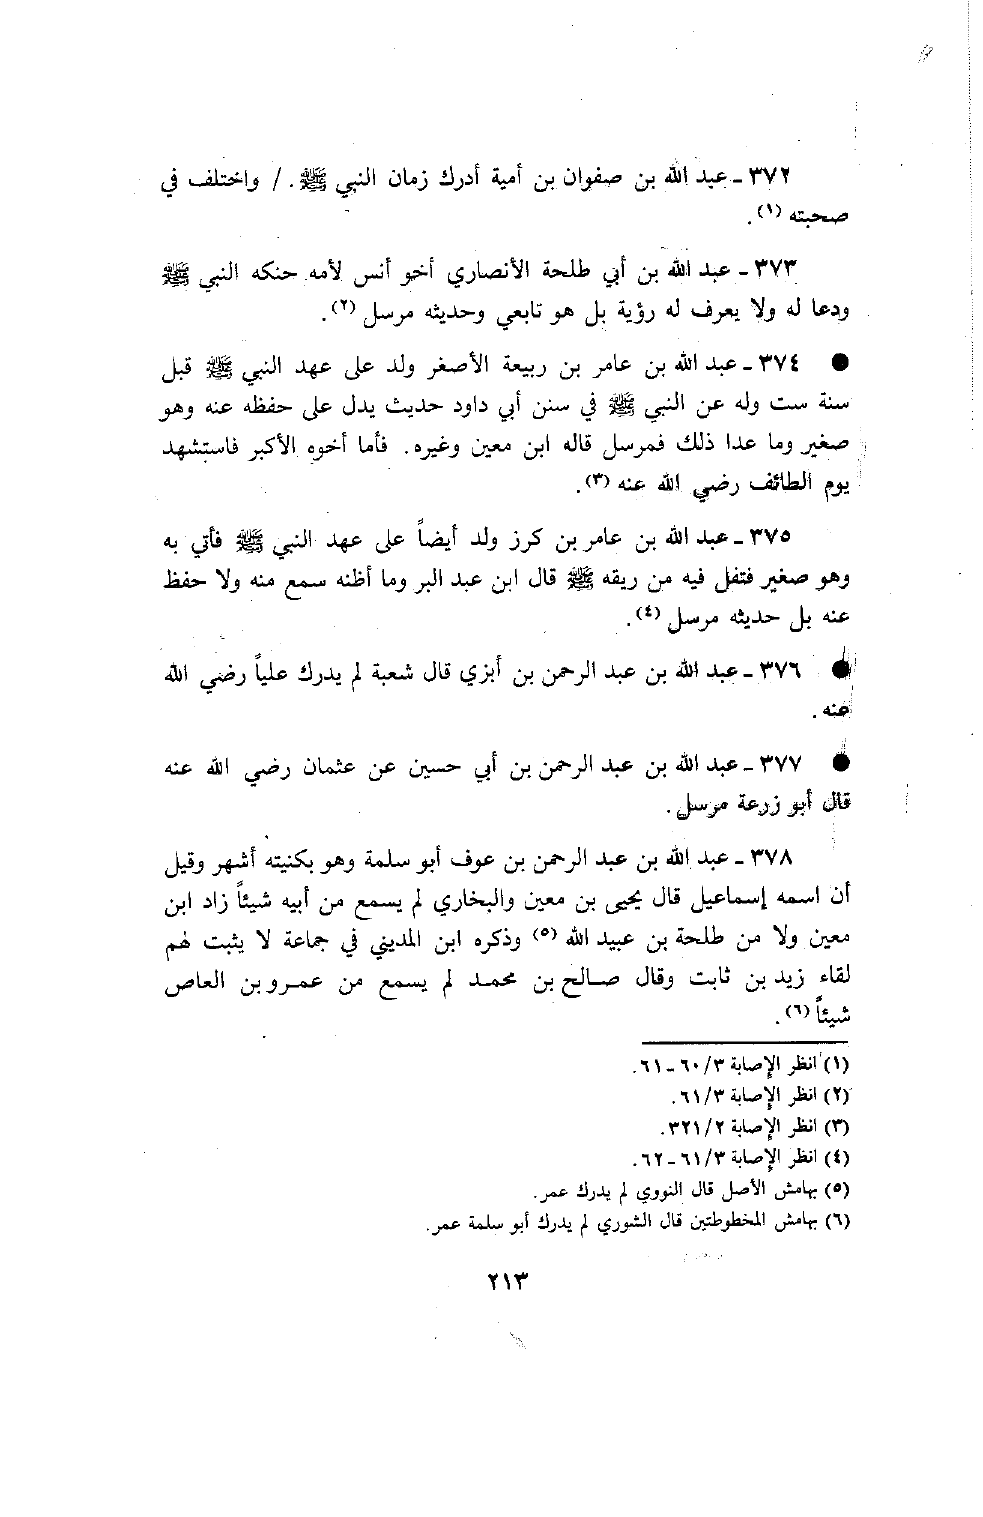 ٣٧٢ ـ عبد الله بن صفوان بن أمية أدرك زمان النبي ﷺ . / واختلف في
صحبته (١).
٣٧٣ ـ عبد الله بن أبي طلحة الأنصاري أخو أنس لأمه حنكه النبي ﷺ
ودعا له ولا يعرف له رؤية بل هو تابعي وحديثه مرسل (٢).
● ٣٧٤ ـ عبد الله بن عامر بن ربيعة الأصغر ولد على عهد النبي ﷺ قبل
سنة ست وله عن النبي ﷺ في سنن أبي داود حديث يدل على حفظه عنه وهو
صغير وما عدا ذلك فمرسل قاله ابن معين وغيره. فأما أخوه الأكبر فاستشهد
يوم الطائف رضي الله عنه (٣).
٣٧٥ ـ عبد الله بن عامر بن كرز ولد أيضاً على عهد النبي ﷺ فأتي به
وهو صغير فتفل فيه من ريقه ﷺ قال ابن عبد البر وما أظنه سمع منه ولا حفظ
عنه بل حديثه مرسل (٤).
● ٣٧٦ ـ عبد الله بن عبد الرحمن بن أبزي قال شعبة لم يدرك علياً رضي الله
عنه .
● ٣٧٧ ـ عبد الله بن عبد الرحمن بن أبي حسين عن عثمان رضي الله عنه
قال أبو زرعة مرسل.
٣٧٨ ـ عبد الله بن عبد الرحمن بن عوف أبو سلمة وهو بكنيته أشهر وقيل
أن اسمه إسماعيل قال يحيى بن معين والبخاري لم يسمع من أبيه شيئاً زاد ابن
معين ولا من طلحة بن عبيد الله (٥) وذكره ابن المديني في جماعة لا يثبت لهم
لقاء زيد بن ثابت وقال صالح بن محمد لم يسمع من عمرو بن العاص
شيئاً (٦).
(١) انظر الإصابة ٣/ ٦٠ ـ ٦١.
(٢) انظر الإصابة ٣/ ٦١.
(٣) انظر الإصابة ٢/ ٣٢١.
(٤) انظر الإصابة ٣/ ٦١ ـ ٦٢.
(٥) بهامش الأصل قال النووي لم يدرك عمر.
(٦) بهامش المخطوطتين قال الشوري لم يدرك أبو سلمة عمر.
٢١٣